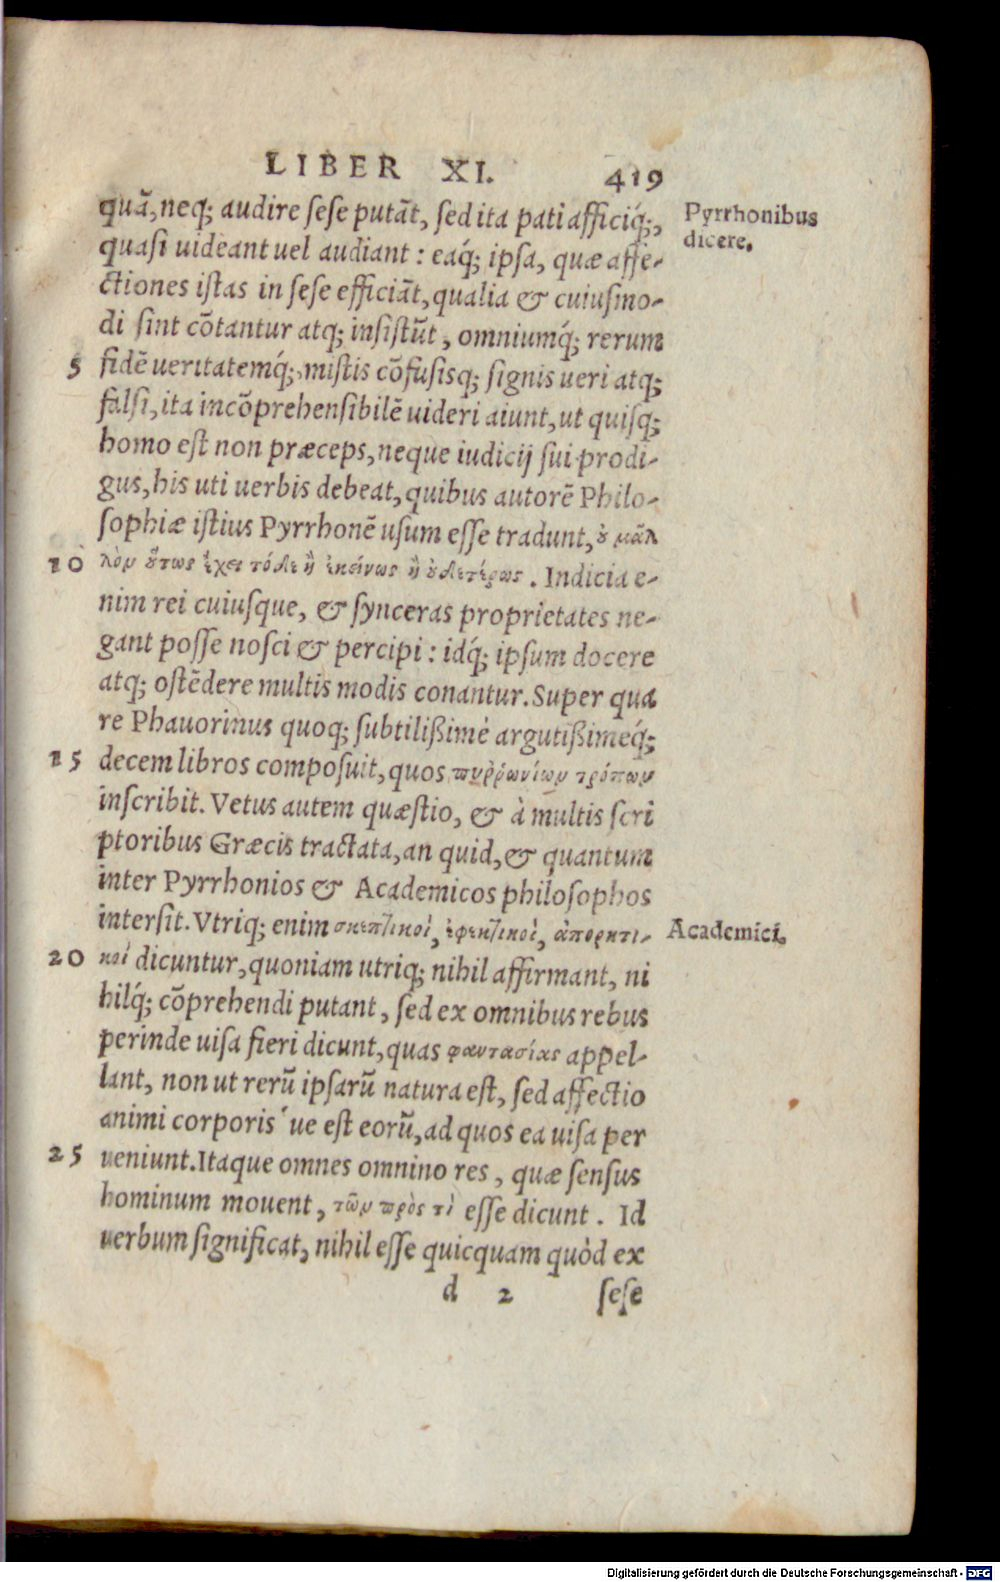 LIBER XI. 419
quã, neq; audire sese putãt, sed ita pati afficiq́;,
Pyrrhonibus
dicere.
quasi uideant uel audiant : eaq́; ipsa, quæ affe-
ctiones istas in sese efficiãt, qualia & cuiusmo-
di sint cõtantur atq; insistũt, omniumq́; rerum
5 fidẽ ueritatemq́;, mistis cõfusisq; signis ueri atq;
falsi, ita incõprehensibilẽ uideri aiunt, ut quisq;
homo est non præceps, neque iudicij sui prodi-
gus, his uti uerbis debeat, quibus autorẽ Philo-
sophiæ istius Pyrrhonẽ usum esse tradunt, ȣ̓ μᾶλ
10 λὸν ȣ̔́τως ἔχει τόδε ἢ ἐκείνως ἢ ȣ̓δετέρως. Indicia e-
nim rei cuiusque, & synceras proprietates ne-
gant posse nosci & percipi : idq́; ipsum docere
atq; ostẽdere multis modis conantur. Super qua
re Phauorinus quoq; subtilißimè argutißimeq́;
15 decem libros composuit, quos πυῤῥωνίων τρόπων
inscribit. Vetus autem quæstio, & à multis scri
ptoribus Græcis tractata, an quid, & quantum
inter Pyrrhonios & Academicos philosophos
intersit. Vtriq; enim σκεπτικοὶ, ἐφεκτικοὶ, ἀπορητι-
Academici.
20 κοὶ dicuntur, quoniam utriq; nihil affirmant, ni
hilq́; cõprehendi putant, sed ex omnibus rebus
perinde uisa fieri dicunt, quas φαντασίας appel-
lant, non ut rerũ ipsarũ natura est, sed affectio
animi corporis´ue est eorũ, ad quos ea uisa per
25 ueniunt. Itaque omnes omnino res, quæ sensus
hominum mouent, τῶν πρὸς τὶ esse dicunt. Id
uerbum significat, nihil esse quicquam quòd ex
d 2 sese
Digitalisierung gefördert durch die Deutsche Forschungsgemeinschaft - DFG